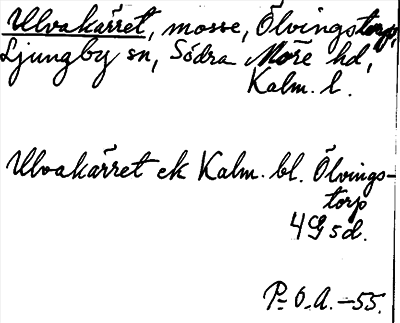 Ulvakärret, mosse, Ölvingstorp,
Ljungby sn, Södra Möre hd,
Kalm. l.
Ulvakärret ek Kalm. bl. Ölvings-
torp
4G5d.
P-O.A. -55.